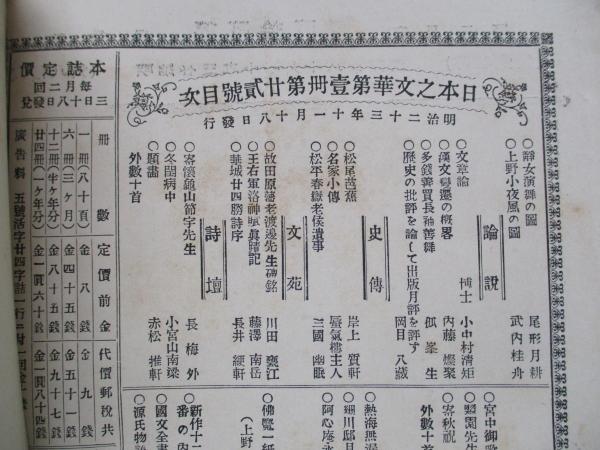 日本之文華第壹冊第廿貳號目次
明治二十三年十一月十八日發行
○靜女演舞の圖 尾形月耕
○上野小夜風の圖 武內桂舟
論說
○文章論 博士 小中村清矩
○漢文學遷の概畧 內藤燦聚
○多錢善賈長袖善舞 弧峯生
○歷史の批評を論して出版月評を評す 岡目八藏
史傳
○松尾芭蕉 岸上質軒
○名家小傳 蜃氣樓主人
○松平春嶽老侯遺事 三國幽眠
文苑
○故田原藩老渡邊先生碑銘 川田甕江
○王右軍洛神賦眞蹟記 藤澤南岳
○華城廿四勝詩序 長井綆軒
詩壇
○寄懷龜山節宇先生 長梅外
○冬閨病中 小宮山南梁
○題畵 赤松椎軒
外數十首
○宮中御歌
○寄秋祝
外數十首
○熱海無
○細川邸月
○阿心庵
○佛覽一紙
(上野
○新作十二
番の內
○國文全書
○源氏物
本誌定價
每月二回
三日十八日發兌
冊數 定價 前金 代價郵稅共
一冊(八十頁) 金八錢 金九錢
六冊(三ヶ月) 金四十五錢 金五十一錢
十二冊(半ヶ年分) 金八十五錢 金九十七錢
廿四冊(一ヶ年分) 金一圓六十錢 金一圓八十四
廣告料 五號活字廿四字詰一行ニ付一回金